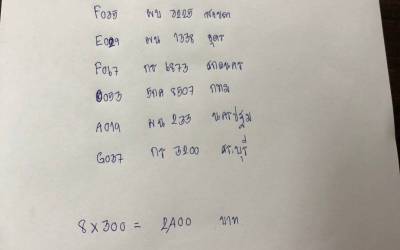 F035 ผบ 3225 สงขลา
E029 ผน 1338 อุดร
F067 กร 6873 สกลนคร
0053 8507 กทม
A019 ผน 233 นครปฐม
G037 กร 3200 สระบุรี
8 X 300 = 2,400 บาท